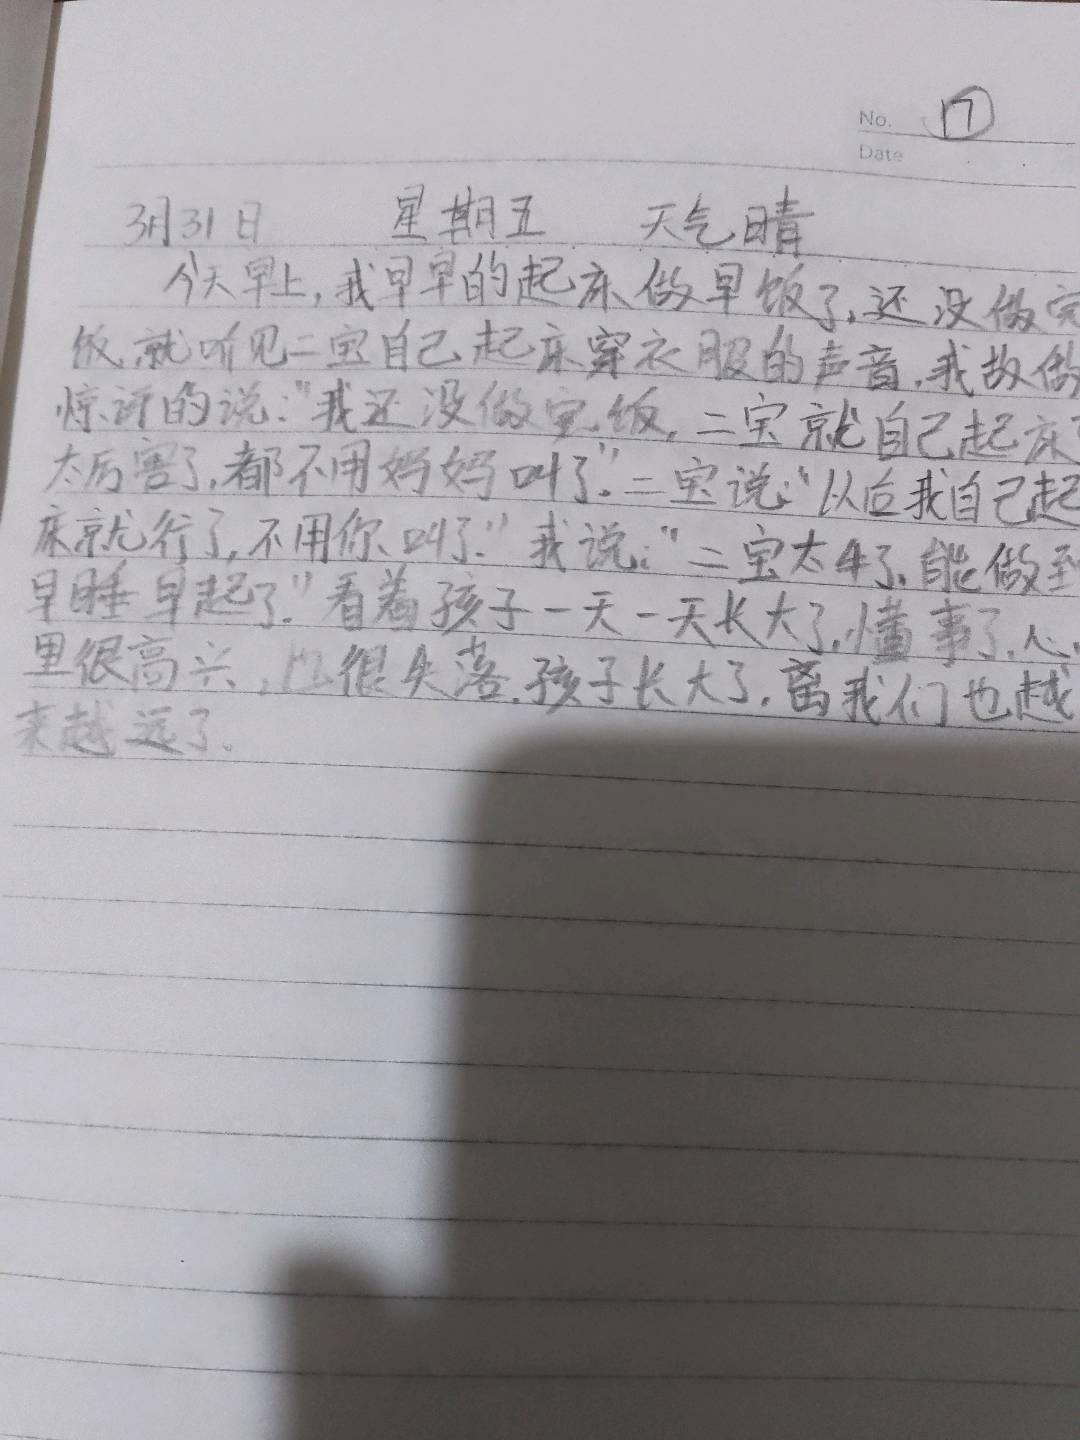 No. 17
Date
3月31日 星期五 天气晴
今天早上,我早早的起床做早饭了,还没做完
饭,就听见二宝自己起床穿衣服的声音,我故做
惊讶的说:"我还没做完饭,二宝就自己起床了
太厉害了,都不用妈妈叫了。"二宝说:"以后我自己起
床就行了,不用你叫了。"我说:"二宝太牛了,能做到
早睡早起了。"看着孩子一天一天长大了,懂事了,心
里很高兴,也很失落,孩子长大了,离我们也越
来越远了。